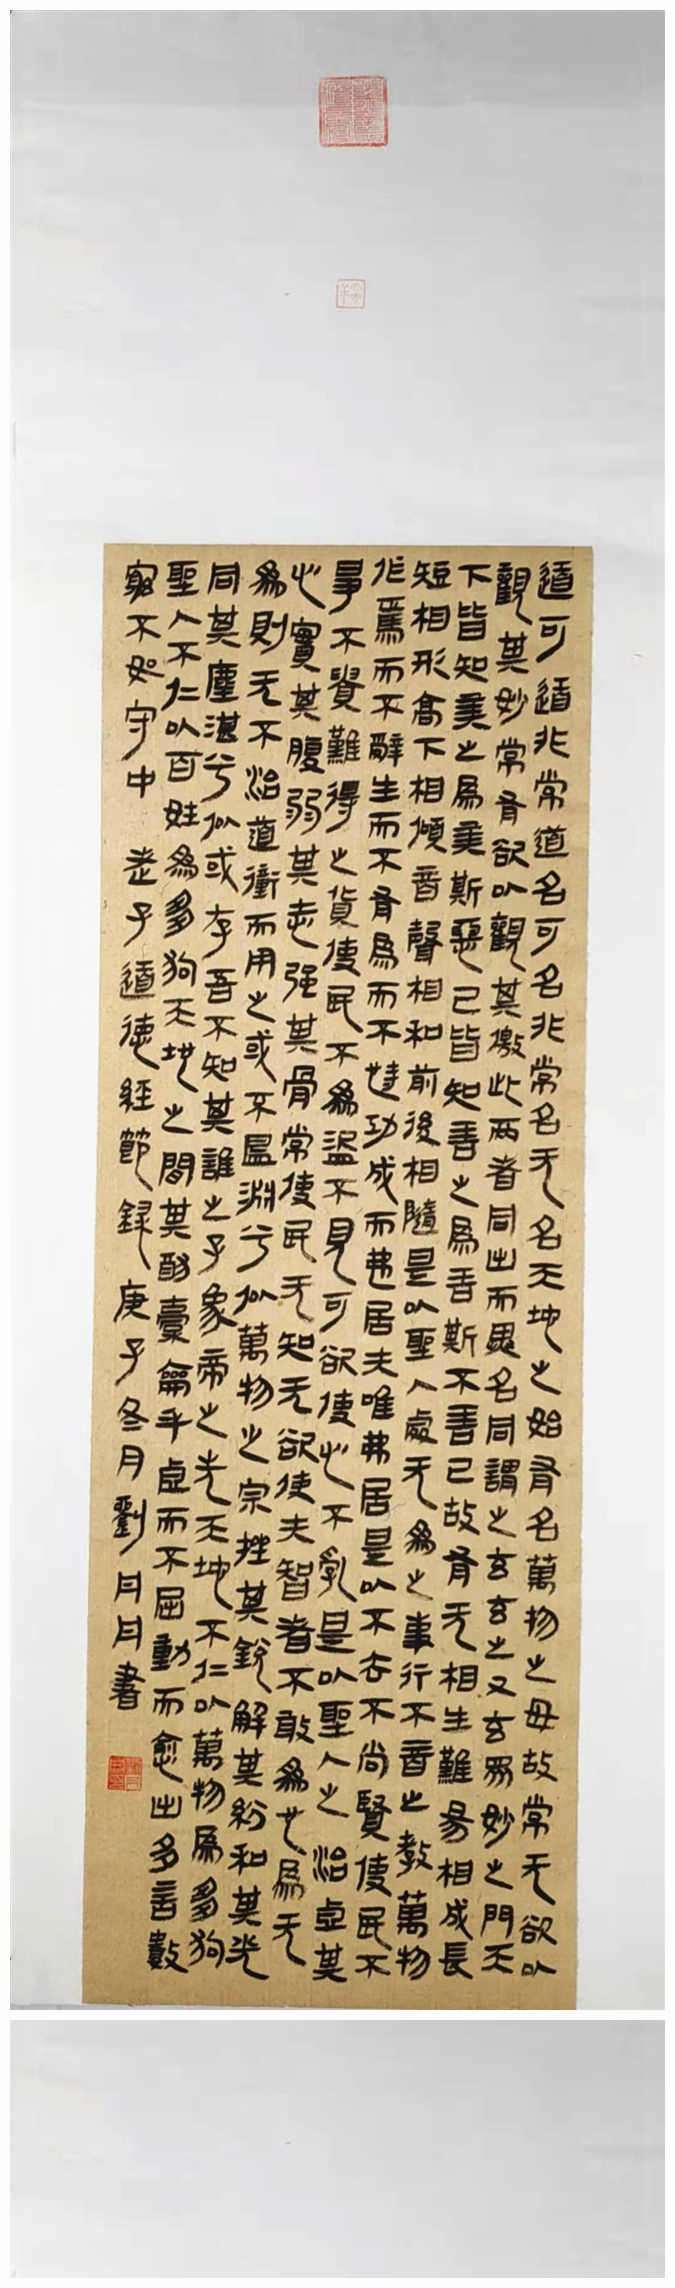 道可道非常道名可名非常名无名天地之始有名萬物之母故常无欲以
觀其妙常有欲以觀其徼此兩者同出而異名同謂之玄玄之又玄眾妙之門天
下皆知美之為美斯惡已皆知善之為善斯不善已故有无相生難易相成長
短相形高下相傾音聲相和前後相隨是以聖人處无為之事行不言之教萬物
作焉而不辭生而不有為而不恃功成而弗居夫唯弗居是以不去不尚賢使民不
爭不貴難得之貨使民不為盜不見可欲使心不亂是以聖人之治虛其
心實其腹弱其志强其骨常使民无知无欲使夫智者不敢為也為无
為則无不治道衝而用之或不盈淵兮似萬物之宗挫其銳解其紛和其光
同其塵湛兮似或存吾不知其誰之子象帝之先天地不仁以萬物為芻狗
聖人不仁以百姓為芻狗天地之間其猶橐籥乎虛而不屈動而愈出多言數
窮不如守中 老子道德經節錄 庚子冬月劉書